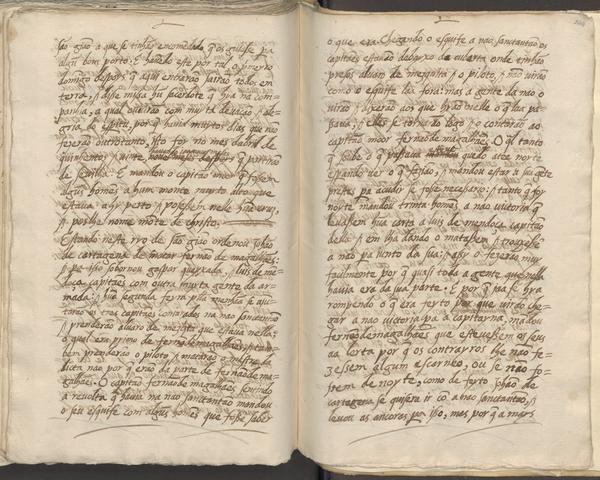 são gião a que se tinhão encomēdado q̃ os guiasse pa
algũ bom porto. E havēdo este por tal o prirº
domingo despois q̃ aqui entrarão sairão todos em
terra, disse missa hũ saçerdote q̃ hia na com-
panhia, a qual ouvirão com muyta devação, ale-
gria de espũ, por q̃ havia muytos dias que não
fezerão outro tanto, isto foy no mes dabril de
quinhentos vinte despois q̃ partirão
de sevilha. E mandou o capitão moor q̃
algũs homẽs a hum monte muyto alto que
estava ahy perto posessem nelle hũa cruz,
poslhe nome mōte de christo.
Estando neste rro de são gião ordenou johão
de cartagena de matar fernão de magalhães:
pera isso sobornou gaspar quexada, luis de mē-
doça capitães com outra muyta gente da ar-
mada: hũa segunda feira pella menhã se aju-
tarão os tres capitães cōtados na nao sanctantão
prenderão alvaro de mesqta que estava nella:
o qual era primo de fernão de magalhães: tam-
bem prenderão o piloto, matarão o mestre da
dicta nao por q̃ erão da parte de fernão de ma-
galhães. O capitão fernão de magalhães sentindo
a revolta q̃ havia na nao sanctantão mandou
o seu esquife com algũs homẽs que fosse saber
o que era. Chegando o esquife a nao sanctantão os
capitães estavão debaxo da cuberta onde tinhão
presos alvaro de mezquita o piloto, não virão
como o esquife lá fora: mas a gente da nao o
virão, dixerão aos que hião nelle o q̃ laa pa-
sava, elles se tornarão logo o contarão ao
capitão moor fernão de magalhães. O ql tanto
q̃ soube o q̃ passava quedo ate a noite
esperando ver o q̃ fazião, mandou estar a sua gēte
prestes pa acudir se fosse necesario: tanto q̃ foy
noite mandou trinta homẽs a nao victoria q̃
levassem hũa carta a luis de mendoça capitão
della em lha dando o matassem trouxesse
a nao pa junto da sua: assy o fezerão muy
facilmente por q̃ quasi toda a gente que nella
havia era da sua parte. E por q̃ ja se hia
rompendo o q̃ era feyto por que virão che-
gar a nao victoria pa a capitayna, mandou
fernão de magalhães que estevessem os seus
aa lerta por q̃ os contrayros lhe não fe-
zessem algum escarneo, ou se não fo-
ssem de noyte, como de feyto johão de
cartagena se quisera ir cõ a nao sanctantão,
levou as ancoras pa isso, mas por q̃ a mays